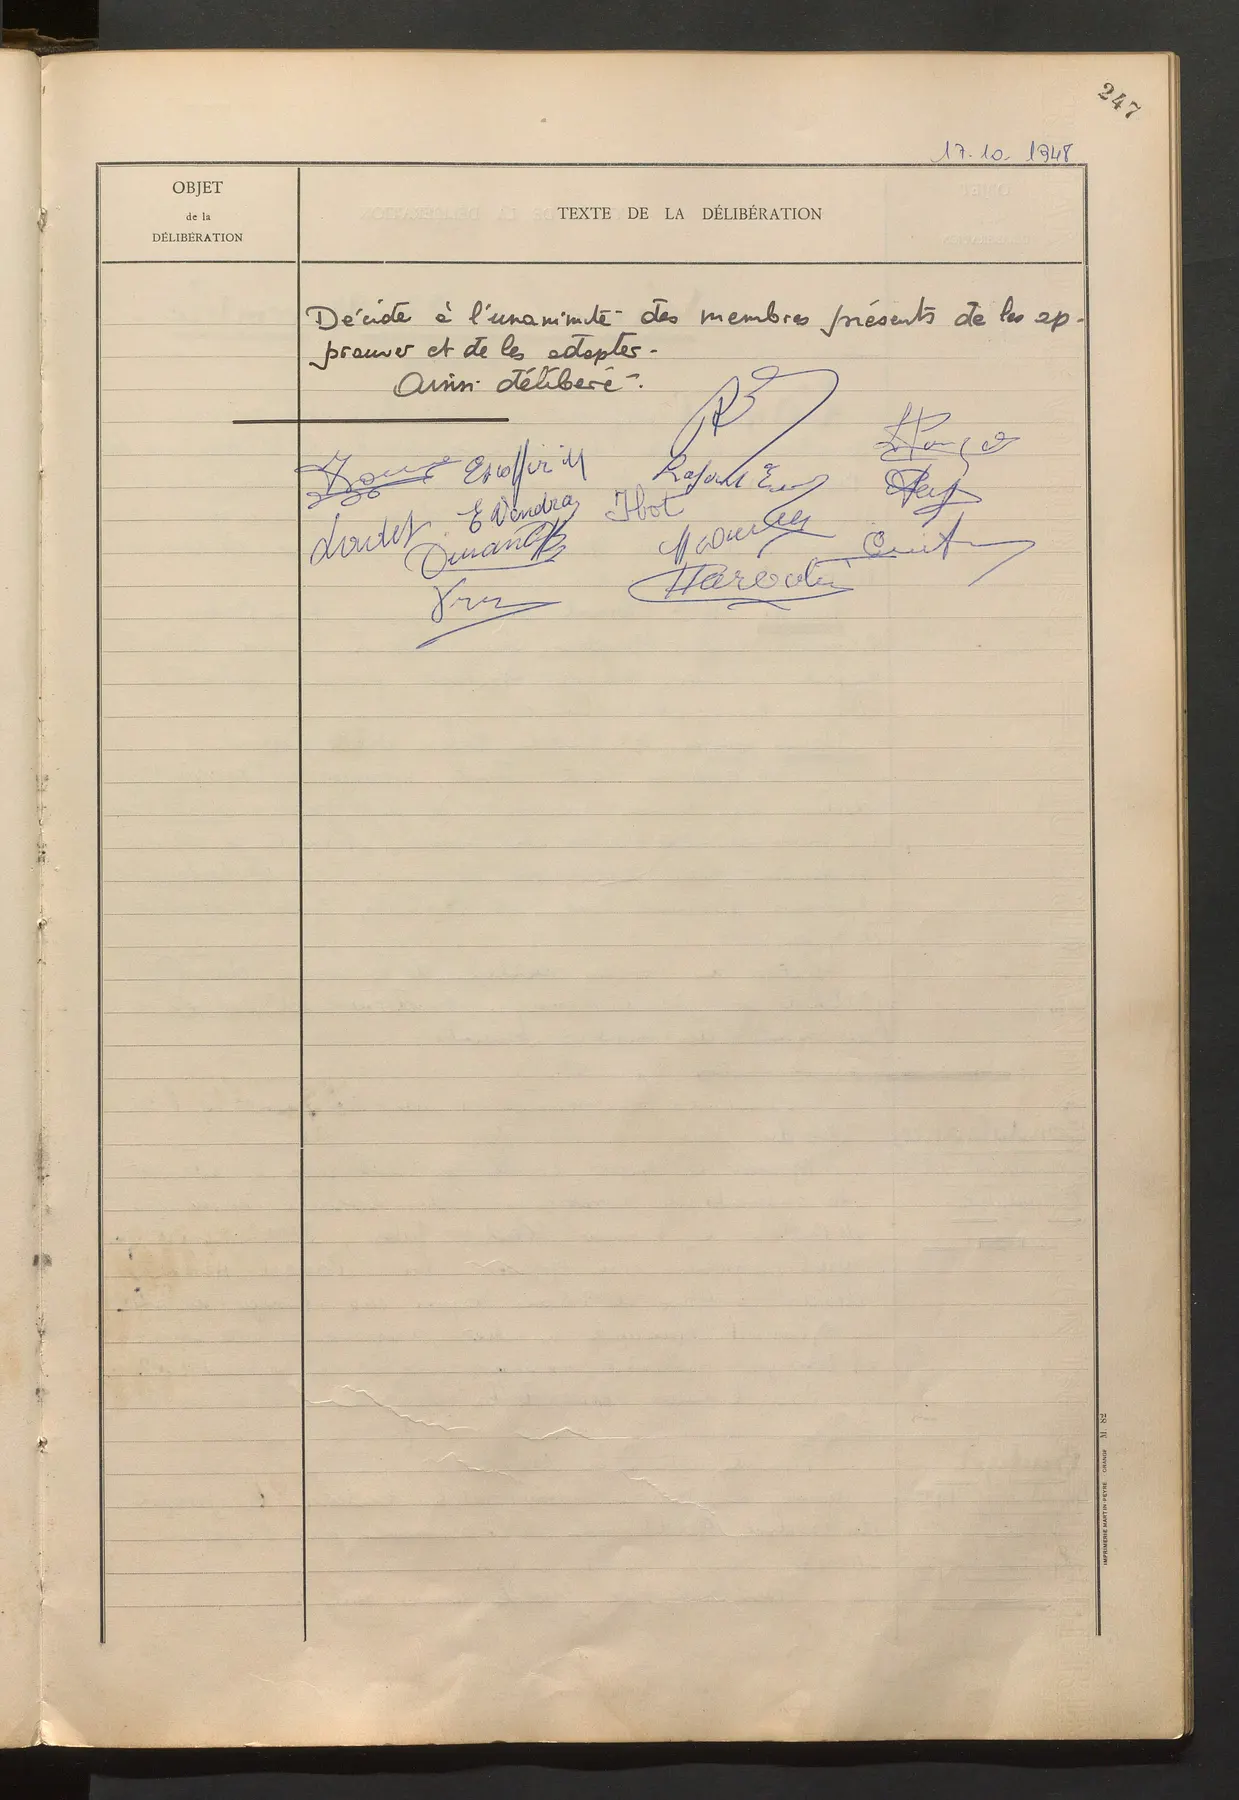 247
17.10.1948
OBJET
de la
DÉLIBÉRATION
TEXTE DE LA DÉLIBÉRATION
Décide à l'unanimité des membres présents de les ap-
prouver et de les adopter.
Ainsi délibéré.
Escoffier M
E Vendran
Ibot
Loudet
Durand
IMPRIMERIE MARTIN-PEYRE ORANGE M. 82